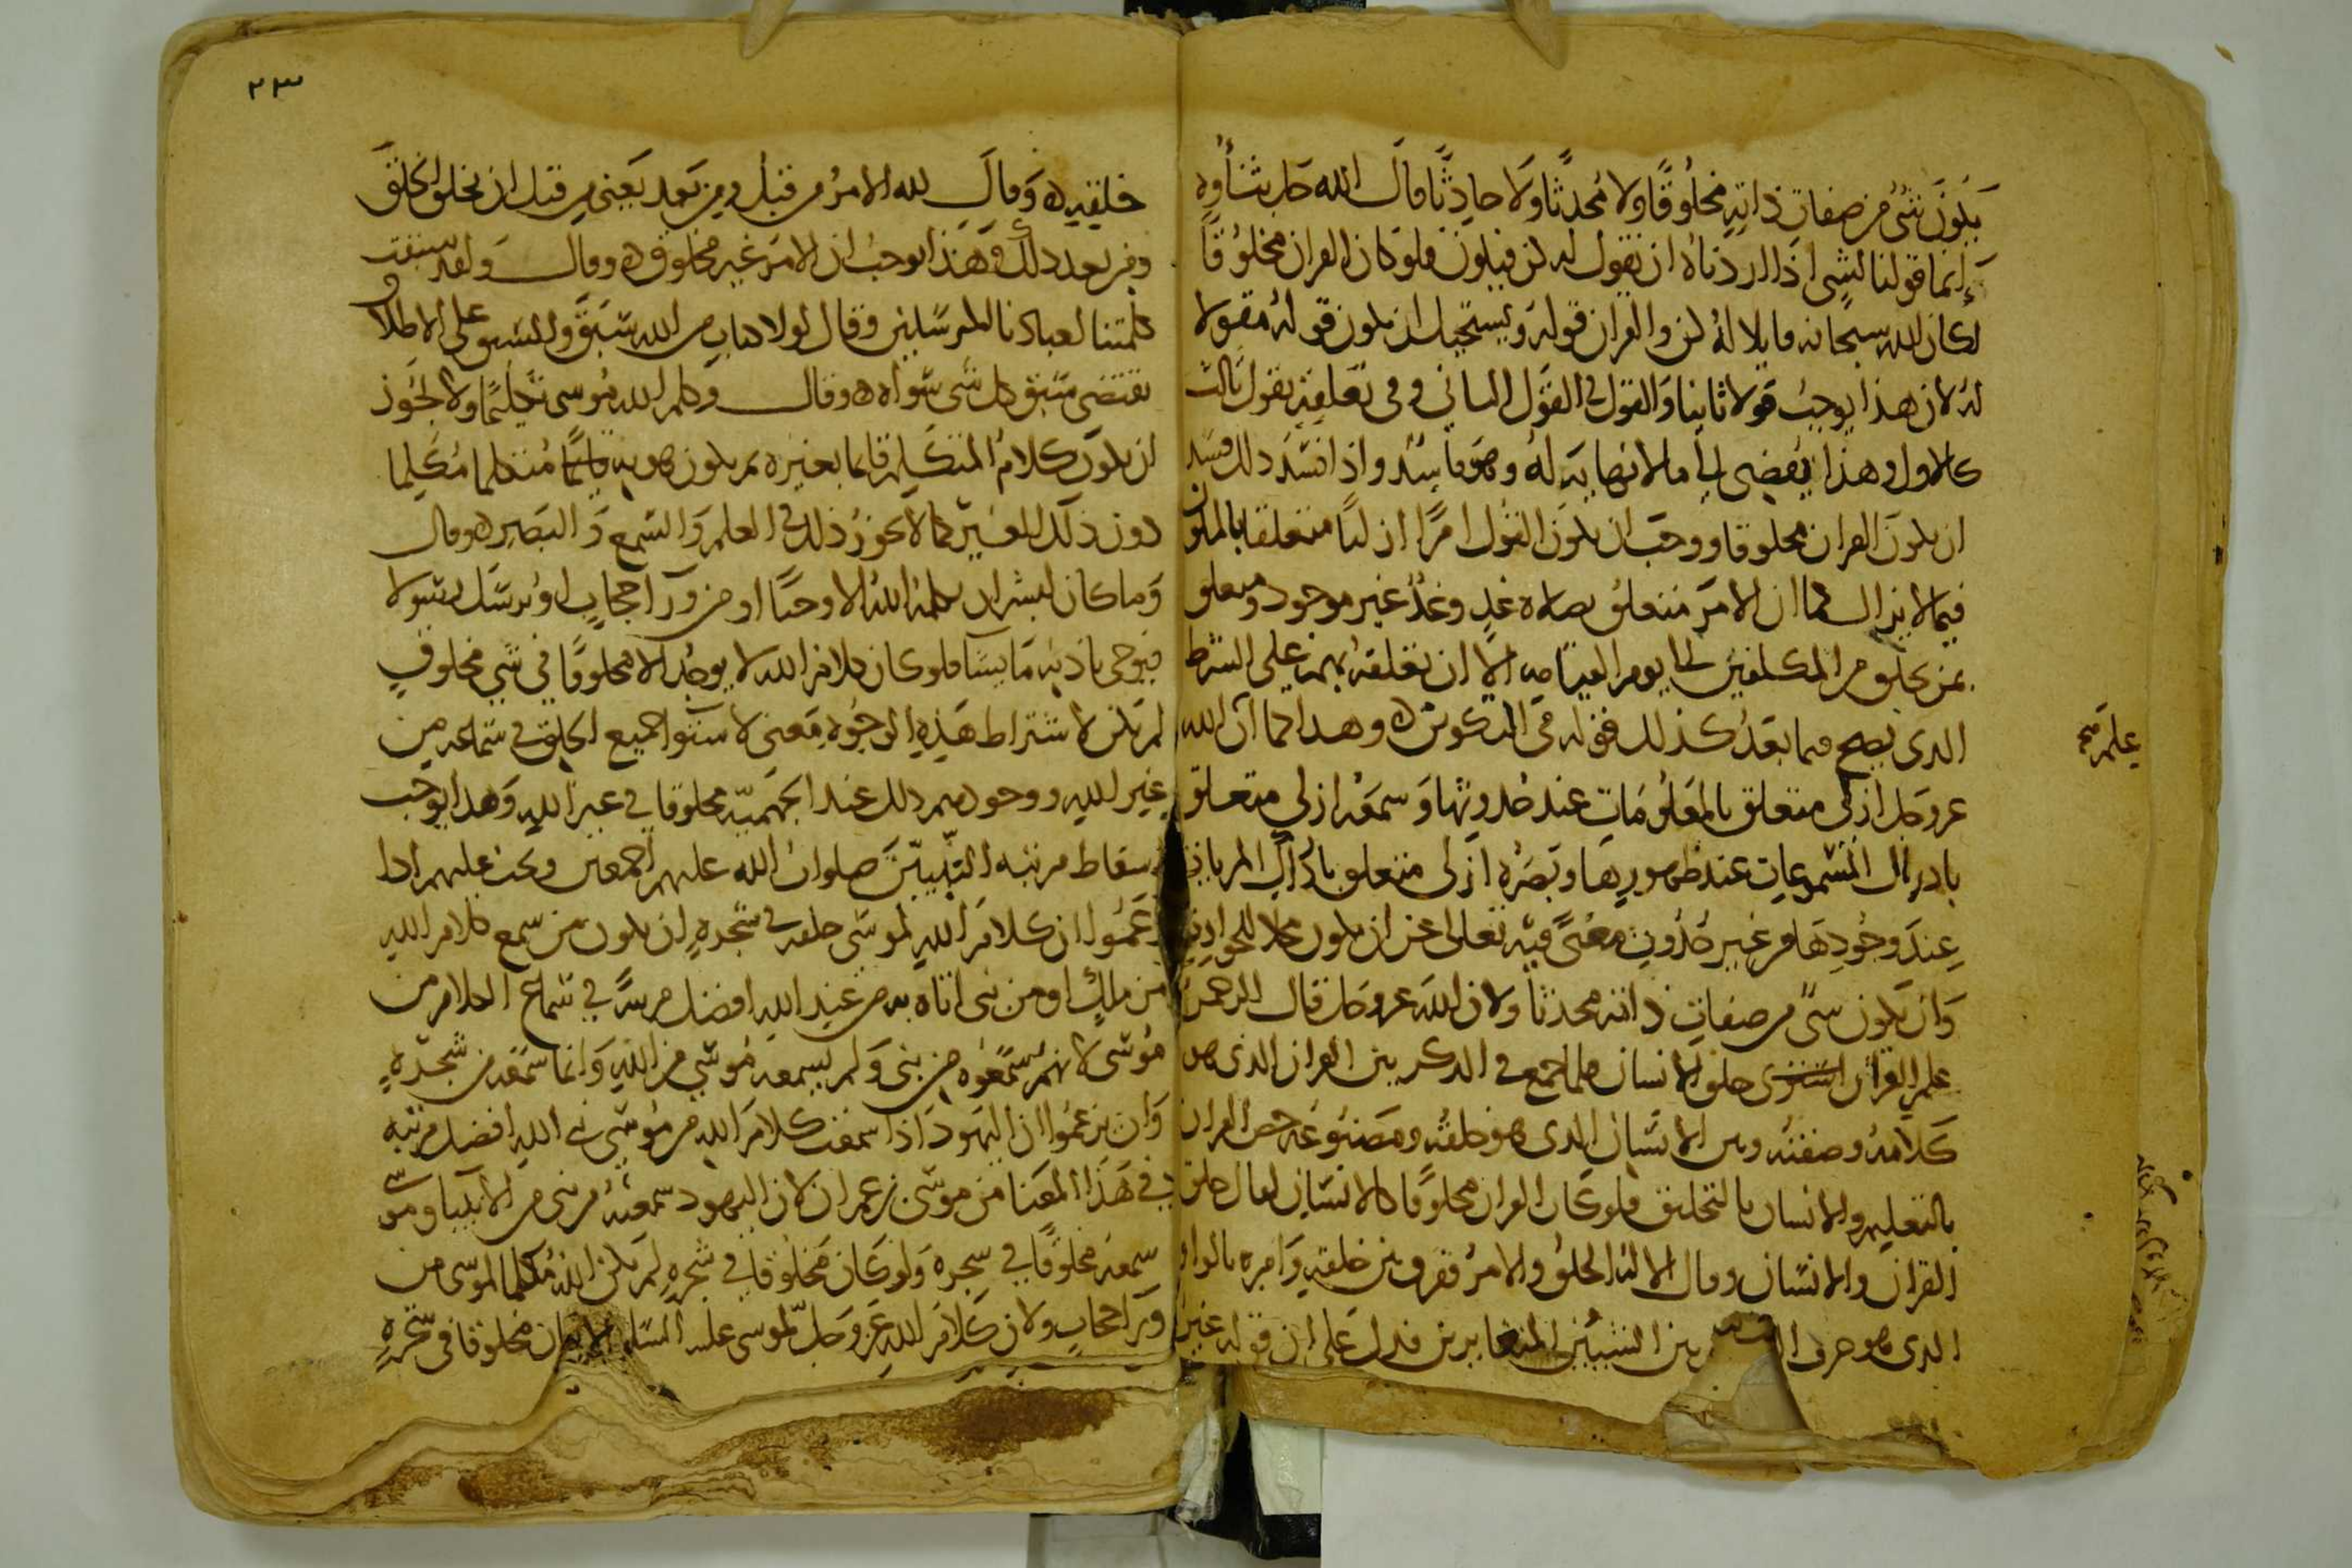 يكون شيء من صفات ذاته مخلوقًا ولا محدثًا ولا حادثًا قال الله جل ثناؤه
إنما قولنا لشيء اذا اردناه ان نقول له كن فيكون فلو كان القران مخلوقًا
لكان الله سبحانه قايلا له كن والقران قوله ويستحيل ان يكون قوله مقولا
له لان هذا يوجب قولا ثانيا والقول في القول الثاني وفي تعلقه بقول ثالث
كالاول وهذا يفضي الى ما لا نهاية له وهو فاسد واذا فسد ذلك فسد
ان يكون القران مخلوقا ووجب ان يكون القول امرًا ازليًا متعلقا بالمكون
فيما لا يزال كما ان الامر متعلق بصلاة غدٍ وغدٌ غير موجود ومتعلق
بمن يخلق من المكلفين الى يوم القيامه الا ان تعلقه بهم على الشرط
الذي يصح فيما بعد كذلك قوله في التكوين ه وهذا كما ان الله
علم صح
عز وجل ازلي متعلق بالمعلومات عند حدوثها وسمعه ازلي متعلق
بادراك المسموعات عند ظهورها وبصره ازلي متعلق بادراك المرئيات
عند وجودها من غير حدوث معنًى فيه تعالى عن ان يكون محلا للحوادث
وان يكون شيء من صفات ذاته محدثا ولان الله عز وجل قال الرحمن
علم القران خلق الانسان فلما جمع في الذكر بين القران الذي هو
كلامه وصفته وبين الانسان الذي هو خلقه ومصنوعه خص القران
بالتعليم والانسان بالتخليق فلو كان القران مخلوقًا كالانسان لقال خلق
القران والانسان وقال الا له الخلق والامر ففرق بين خلقه وامره بالواو
الذي هو حرف بين الشيئين المتغايرين فدل على ان قوله غير
٢٣
خلقه ه وقال لله الامر من قبل ومن بعد يعني من قبل ان يخلق الخلق
ومن بعد ذلك وهذا يوجب ان الامر غير مخلوق ه وقال ولقد سبقت
كلمتنا لعبادنا المرسلين وقال لولا كتاب من الله سبق والسبق على الاطلاق
يقتضي سبق كل شي سواه ه وقال وكلم الله موسى تكليمًا ولا يجوز
ان يكون كلام المتكلم قائما بغيره ثم يكون هو به متكلما مكلما
دون ذلك الغير كما لا يجوز ذلك في العلم والسمع والبصر ه وقال
وما كان لبشر ان يكلمه الله الا وحيًا او من ورآ حجاب او يرسل رسولا
فيوحي باذنه ما يشا فلو كان كلام الله لا يوجد الا مخلوقًا في شي مخلوقٍ
لم يكن لاشتراط هذه الوجوه معنى لاستوا جميع الخلق في سماعه من
غير الله ووجودهم ذلك عند الجهمية مخلوقا في غير الله وهذا يوجب
اسقاط مرتبه النبيين صلوات الله عليهم اجمعين ويجب عليهم اذا
زعموا ان كلام الله لموسى خلقه في شجرةٍ ان يكون من سمع كلام الله
من ملك او من نبي اتاه به من عند الله افضل مرتبة في سماع الكلام من
موسى لانهم سمعوه من نبي ولم يسمعه موسى من الله وانما سمعه من شجرةٍ
وان يزعموا ان اليهود اذ سمعت كلام الله من موسى نبي الله افضل مرتبه
في هذا المعنا من موسى بن عمران لان اليهود سمعته من نبي من الانبيا وموسى
سمعه مخلوقًا في شجره ولو كان مخلوقًا في شجرهٍ لم يكن الله مكلما لموسى من
ورا حجاب ولان كلام الله عز وجل لموسى عليه السلام لو كان مخلوقا في شجرهٍ